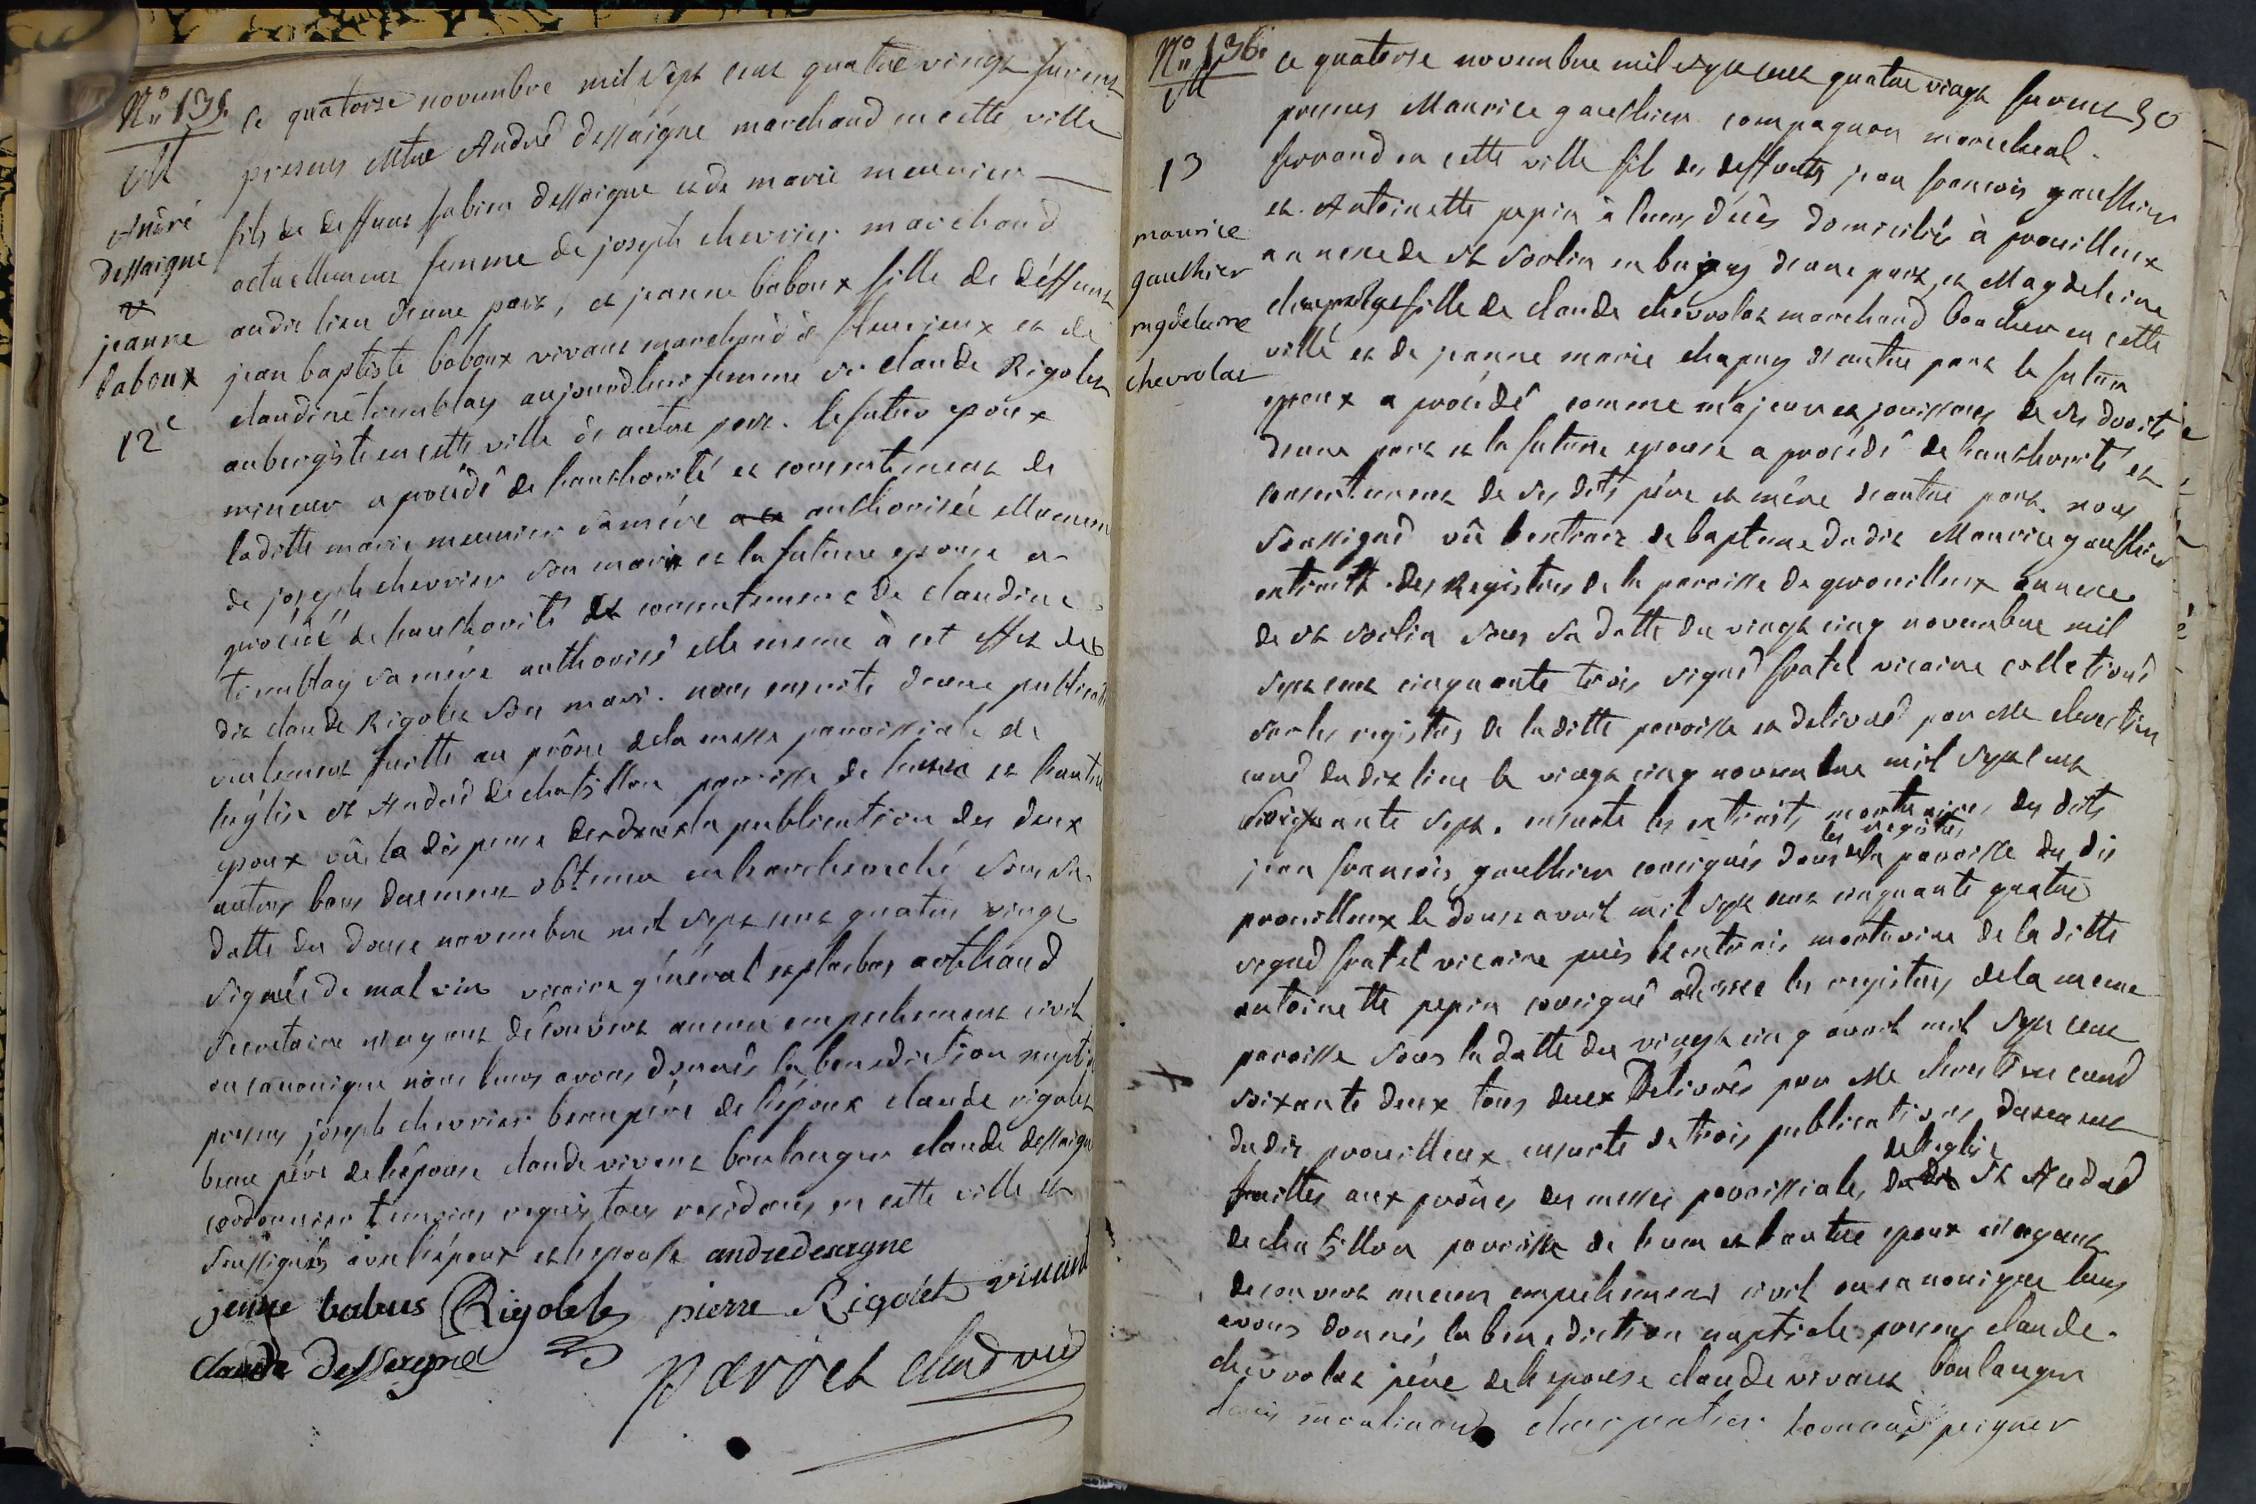 No 135.
M
André
dessaigne
et
jeanne
baboux
12e
Ce quatorze novembre mil sept cent quatre vingt furent
presens Mtre André dessaigne marchand en cette ville
fils de deffunt fabien dessaigne et de marie meunier
actuellement femme de joseph chevrier marchand
audit lieu d'une part, et jeanne baboux fille de déffunt
jean baptiste baboux vivant marchand à fleurieux et de
claudine tremblay aujourdhui femme de claude Rigolet
aubergiste en cette ville d'autre part. le futur epoux
mineur a procédé de l'authorité et consentement de
laditte marie meunier sa mére authorisée
de joseph chevrier son mari et la future epouse a
procédé de l'authorité et consentement de claudine
tremblay sa mére authorisé elle meme à cet effet du
dit claude Rigolet son mari. nous ensuite d'une publication
seulement faitte au prône de la messe paroissiale de
l'églis st André de chatillon paroisse de l'un et l'autre
epoux vû la dispense de la publication des deux
autres bans duement obtenue en l'archeveché sous sa
datte du douze novembre mil sept cent quatre vingt
signée de malvin vicaire général et plus bas
secretaire n'ayant découvert aucun empechement civil
ou canonique nous leurs avons donnés la benediction nuptiale
presens joseph chevrier beaupére de l'époux claude rigolet
beau pére de l'épouse claude vivant boulanger claude dessaigne
cordonnier temoins requis tous residans en cette ville et
soussignés avec l'époux et l'epouse andre desaigne
jenne babues Rigolet pierre Rigolet vivant
claude dessaigne
No 136.
M
13
maurice
gauthier
mgdeleine
chevrolat
30
Ce quatorze novembre mil sept cent quatre vingt furent
presens Maurice gauthier compagnon marechal
ferrand en cette ville fils des deffunts jean francois gauthier
et Antoinette pepin à leurs décès domiciliés à prouilleux
annexe de st sorlin en bugey d'une part, et Magdeleine
fille de claude chevrolat marchand boucher en cette
ville et de jeanne marie chapuy d'autre part le futur
epoux a procédé comme majeur et jouissant de ses droits
d'une part et la future epouse a procédé de l'authorité et
consentement de ses dits pére et mére d'autre part. nous
soussigné vû l'extrait de bapteme dudit Maurice gauthier
extrait des Registres de la paroisse de prouilleux annexe
de st sorlin sous sa datte du vingt cinq novembre mil
sept cent cinquante trois signé fratel vicaire colletionné
sur les registres de laditte paroisse et delivré par Me
curé dudit lieu le vingt cinq novembre mil sept cent
soixante sept. ensuite les extraits mortuaires des dits
jean francois gauthier consignés dans les registres de la paroisse du dit
prouilleux le douze avril mil sept cent cinquante quatre
signé fratel vicaire puis l'extrait mortuaire de la ditte
antoinette pepin consigné les registres de la meme
paroisse sous la datte du vingt cinq avril mil sept cent
soixante deux tous deux delivrés par Me curé
dudit prouilleux ensuite de trois publications duement
faittes aux prônes des messes paroissiales de l'eglis st André
de chatillon paroisse de l'un et l'autre epoux n'ayant
decouvert aucun empechement civil ou canonique leurs
avons donnés la benediction nuptiale presens claude
chevrolat pére de l'epouse claude vivant boulanger
denis moulinand charpentier peigneur